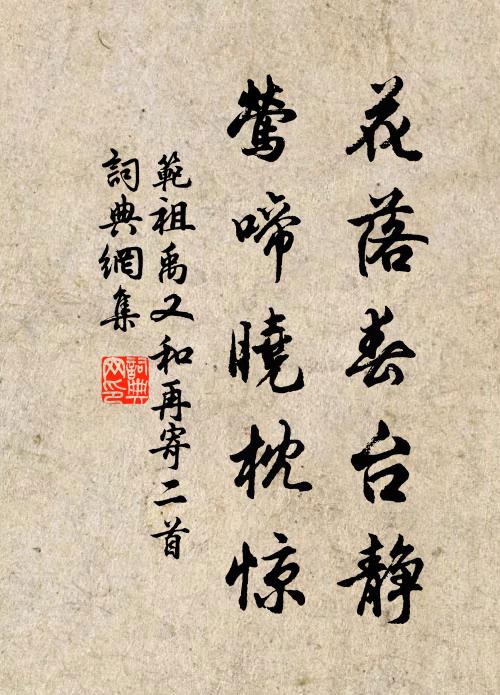 花落春台静
莺啼晓枕惊
範祖禹又和再寄二首
詞典網集
詞典
网印